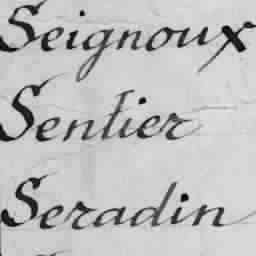 Seignoux
Sentier
Seradin